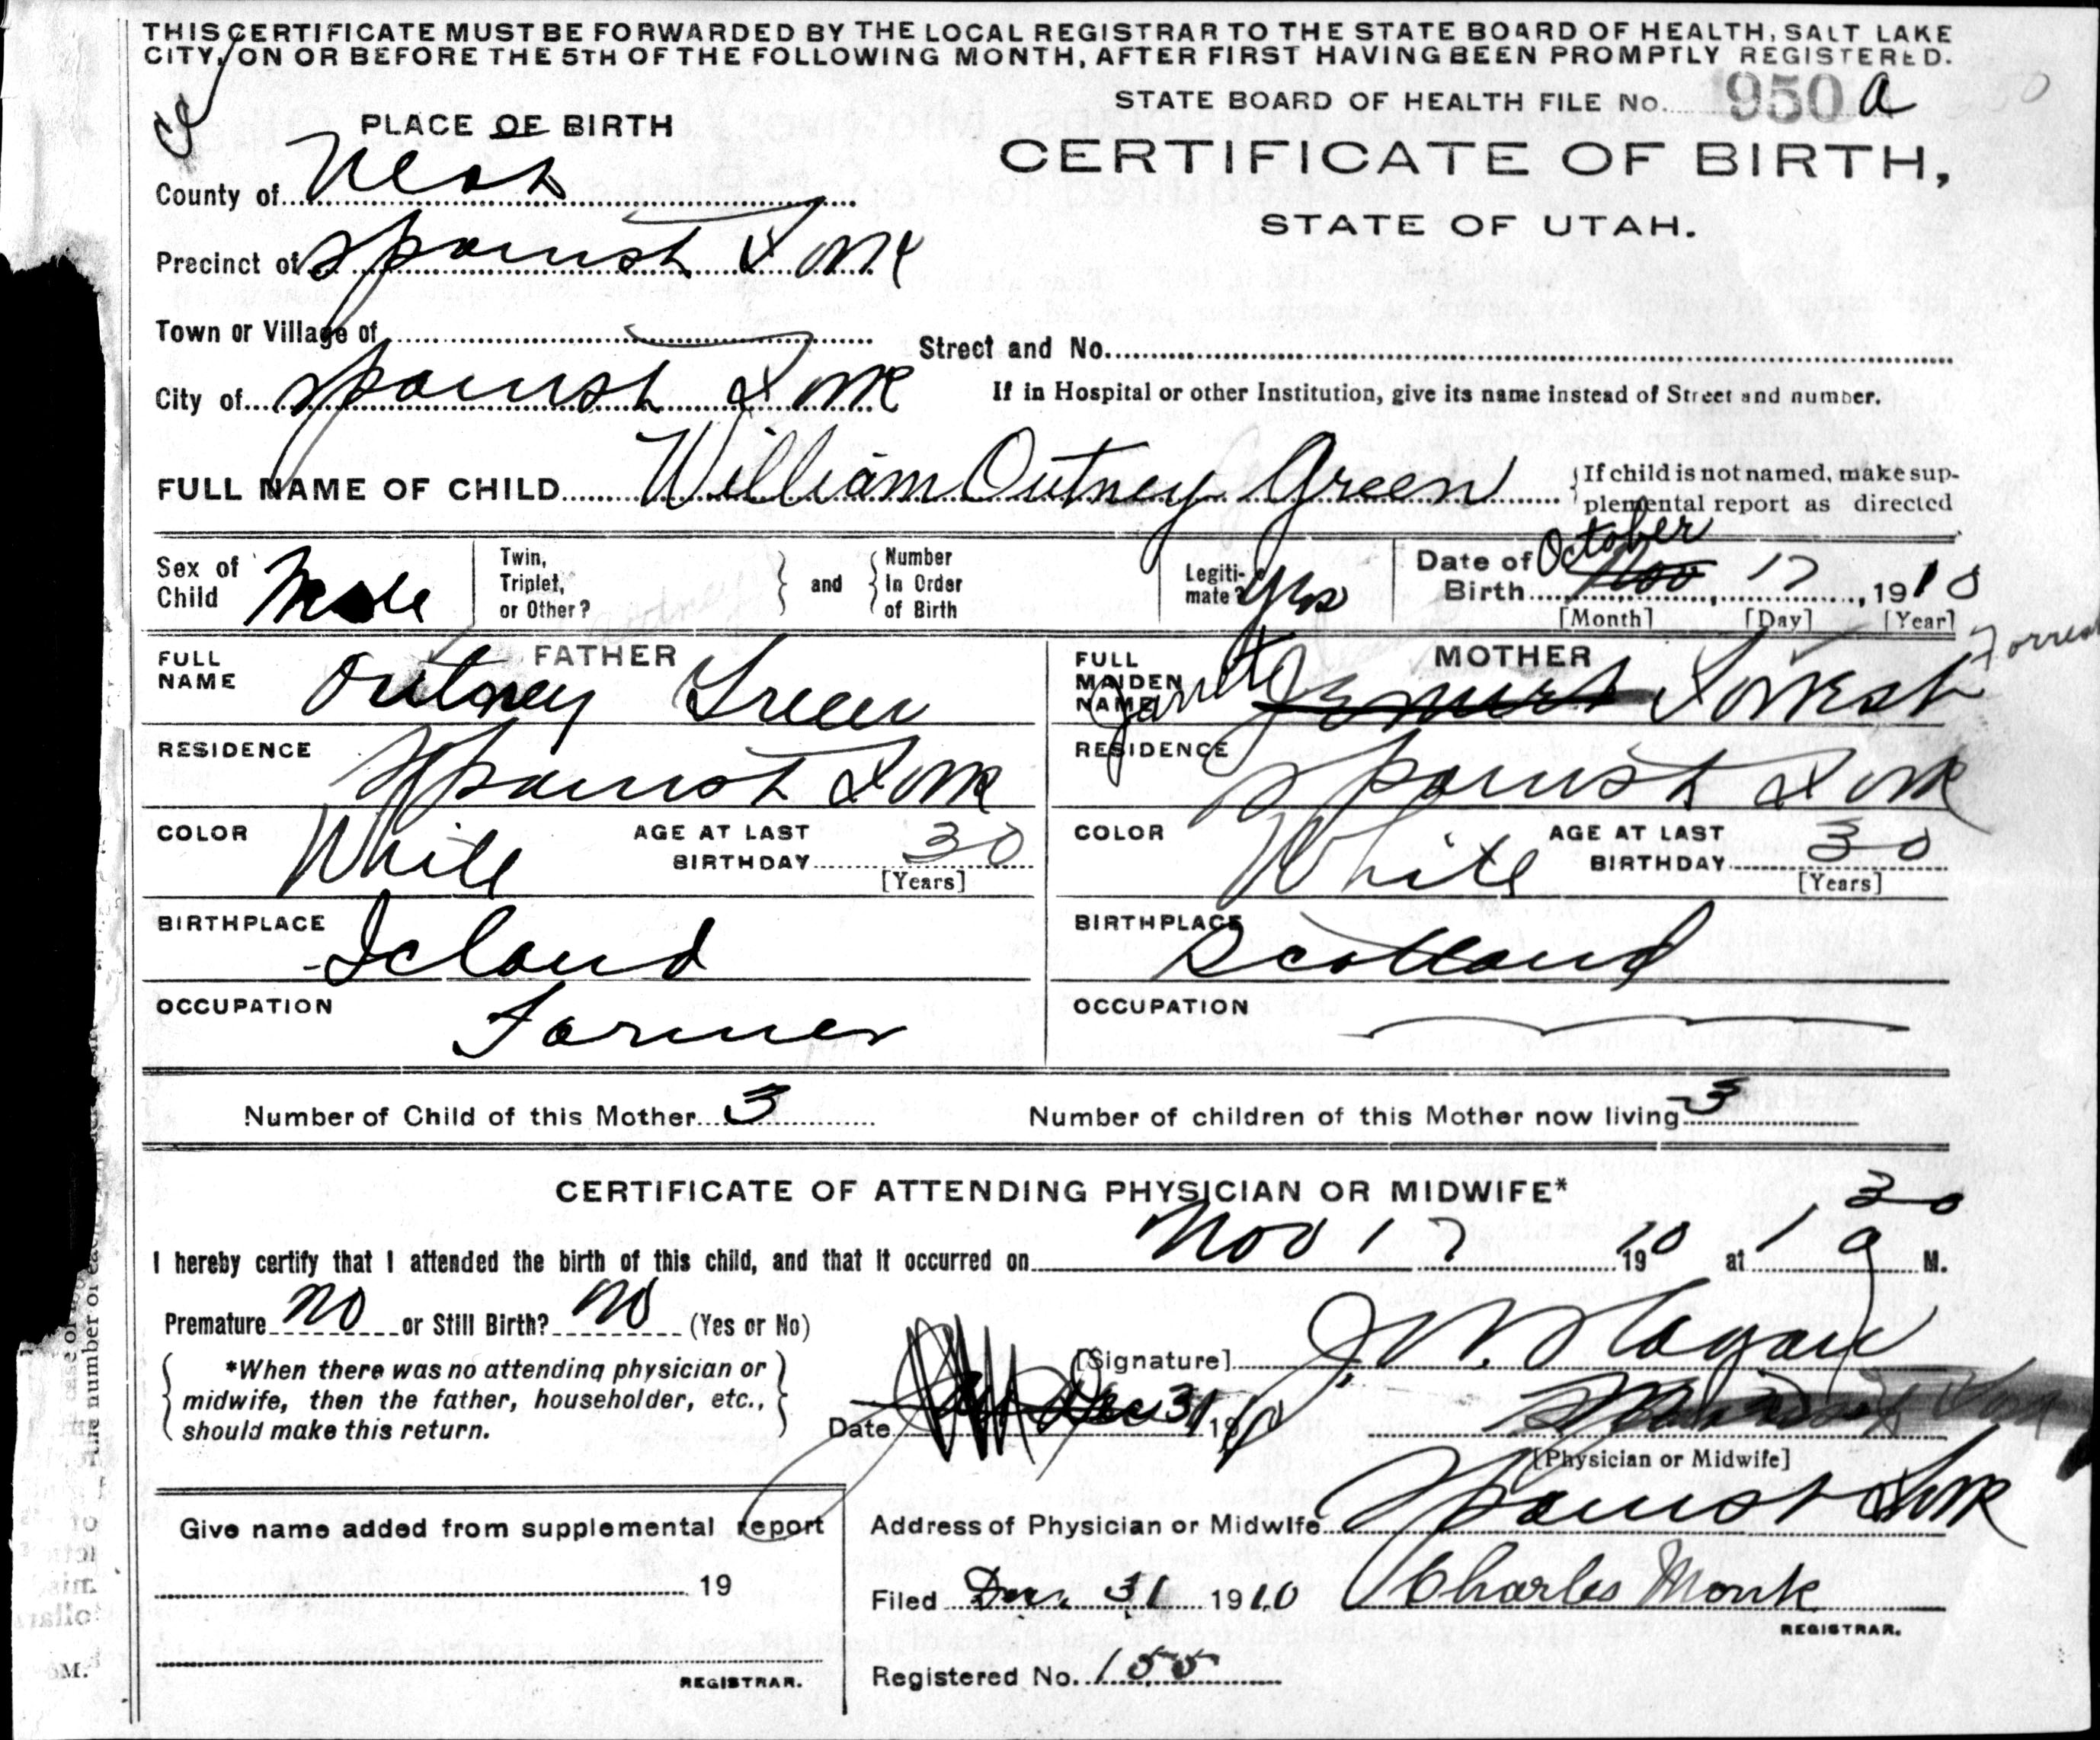 THIS CERTIFICATE MUST BE FORWARDED BY THE LOCAL REGISTRAR TO THE STATE BOARD OF HEALTH, SALT LAKE
CITY, ON OR BEFORE THE 5TH OF THE FOLLOWING MONTH, AFTER FIRST HAVING BEEN PROMPTLY REGISTERED.
STATE BOARD OF HEALTH FILE No. 950 a
PLACE OF BIRTH
CERTIFICATE OF BIRTH,
STATE OF UTAH.
County of Utah
Precinct of Spanish Fork
Town or Village of
Street and No.
City of Spanish Fork
If in Hospital or other Institution, give its name instead of Street and number.
FULL NAME OF CHILD William Outney Green
If child is not named, make sup-
plemental report as directed
Sex of Child Male
Twin, Triplet, or Other?
and
Number In Order of Birth
Legiti-mate? Yes
Date of Birth October Nov 17, 1910
[Month] [Day] [Year]
FATHER
FULL NAME Outney Green
MOTHER
FULL MAIDEN NAME Janet Forrest
Forrest
RESIDENCE Spanish Fork
RESIDENCE Spanish Fork
COLOR White AGE AT LAST BIRTHDAY 30 [Years]
COLOR White AGE AT LAST BIRTHDAY 30 [Years]
BIRTHPLACE Icland
BIRTHPLACE Scotland
OCCUPATION Farmer
OCCUPATION
Number of Child of this Mother 3
Number of children of this Mother now living 3
CERTIFICATE OF ATTENDING PHYSICIAN OR MIDWIFE*
I hereby certify that I attended the birth of this child, and that it occurred on Nov 17 1910 at 1 30 a M.
Premature no or Still Birth? no (Yes or No)
*When there was no attending physician or
midwife, then the father, householder, etc.,
should make this return.
[Signature] J. W. Hagan
Date Dec 31 1910
[Physician or Midwife]
Give name added from supplemental report
19
REGISTRAR.
Address of Physician or Midwife Spanish Fork
Filed Dec. 31 1910 Charles Monk
REGISTRAR.
Registered No. 155